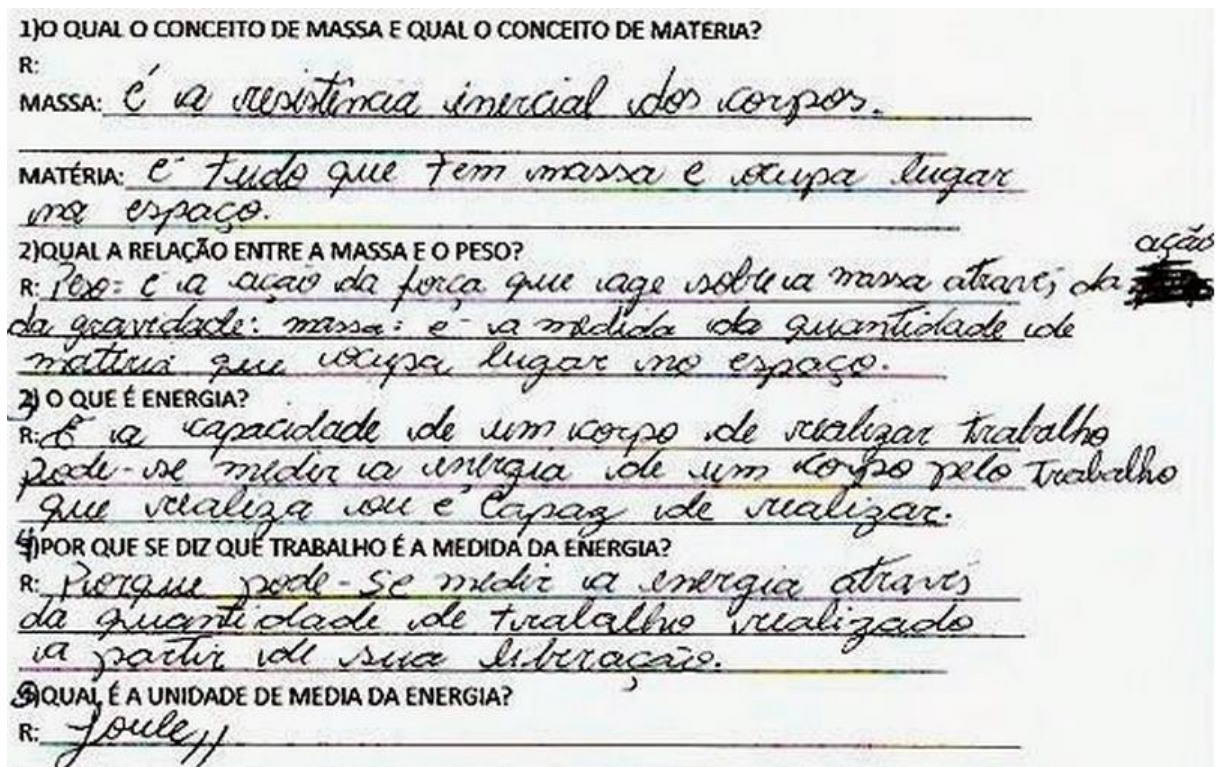 1)O QUAL O CONCEITO DE MASSA E QUAL O CONCEITO DE MATERIA?
R:
MASSA: é a resistência inercial dos corpos.
MATÉRIA: e tudo que tem massa e ocupa lugar
no espaço.
2)QUAL A RELAÇÃO ENTRE A MASSA E O PESO?
ação
R: Peso: é a ação da força que age sobre a massa através da
da gravidade: massa: e a medida da quantidade de
matéria que ocupa lugar no espaço.
3) O QUE É ENERGIA?
R: É a capacidade de um corpo de realizar trabalho
pode-se medir a energia de um corpo pelo trabalho
que realiza ou é capaz de realizar.
4)POR QUE SE DIZ QUE TRABALHO É A MEDIDA DA ENERGIA?
R: Porque pode-se medir a energia através
da quantidade de trabalho realizado
a partir de sua liberação.
5)QUAL É A UNIDADE DE MEDIA DA ENERGIA?
R: Joule,,